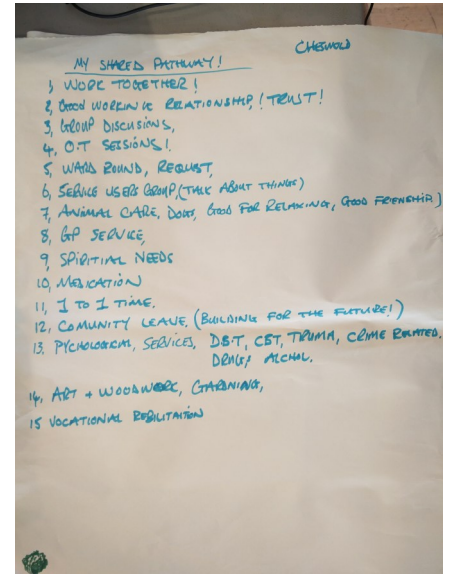 CHESWOLD
MY SHARED PATHWAY!
1, WORK TOGETHER!
2, GOOD WORKING RELATIONSHIP,! TRUST!
3, GROUP DISCUSIONS,
4, O.T SESSIONS!
5, WARD ROUND, REQUST,
6, SERVICE USERS GROUP, (TALK ABOUT THINGS)
7, ANIMAL CARE, DOGS, GOOD FOR RELAXING, GOOD FRIENSHIP)
8, GP SERVICE,
9, SPIRITIAL NEEDS
10, MEDICATION
11, 1 TO 1 TIME.
12, COMUNITY LEAVE. (BUILDING FOR THE FUTURE!)
13. PYCHOLOGICAL, SERVICES, DBT, CBT, TRUMA, CRIME RELATED,
DRUGS, ALCHOL.
14, ART + WOODWORK, GARNING,
15 VOCATIONAL REBILITAITION